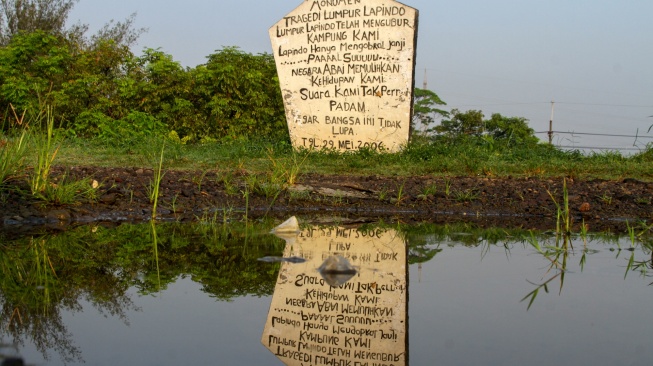 MONUMEN
TRAGEDI LUMPUR LAPINDO
LUMPUR LAPINDO TELAH MENGUBUR
KAMPUNG KAMI
LAPINDO HANYA MENGOBRAL JANJI
......PALSUUUU.....
NEGARA ABAI MEMULIHKAN
KEHIDUPAN KAMI
SUARA KAMI TAK PERNAH
PADAM
AGAR BANGSA INI TIDAK
LUPA
TGL. 29. MEI. 2006